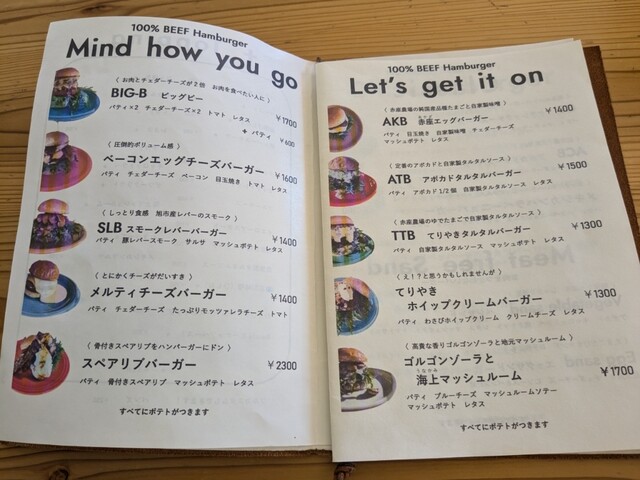 100% BEEF Hamburger
Mind how you go
〈 お肉とチェダーチーズが2倍 お肉を食べたい人に 〉
BIG-B ビッグビー
¥1700
パティ×2 チェダーチーズ×2 トマト レタス
+ パティ ¥600
〈 圧倒的ボリューム感 〉
ベーコンエッグチーズバーガー
¥1600
パティ チェダーチーズ ベーコン 目玉焼き トマト レタス
〈 しっとり食感 旭市産レバーのスモーク 〉
SLB スモークレバーバーガー
¥1400
パティ 豚レバースモーク サルサ マッシュポテト レタス
〈 とにかくチーズがだいすき 〉
メルティチーズバーガー
¥1400
パティ チェダーチーズ たっぷりモッツァレラチーズ トマト
〈 骨付きスペアリブをハンバーガーにドン 〉
スペアリブバーガー
¥2300
パティ 骨付きスペアリブ マッシュポテト レタス
すべてにポテトがつきます
100% BEEF Hamburger
Let's get it on
〈 赤座農場の純国産品種たまごと自家製味噌 〉
AKB 赤座エッグバーガー
¥1400
パティ 目玉焼き 自家製味噌 チェダーチーズ
マッシュポテト レタス
〈 定番のアボカドと自家製タルタルソース 〉
ATB アボカドタルタルバーガー
¥1500
パティ アボカド1/2個 自家製タルタルソース レタス
〈 赤座農場のゆでたまごで自家製タルタルソース 〉
TTB てりやきタルタルバーガー
¥1300
パティ 自家製タルタルソース マッシュポテト レタス
〈 え！？と思うかもしれませんが 〉
てりやき
ホイップクリームバーガー
¥1300
パティ わさびホイップクリーム クリームチーズ レタス
〈 高貴な香りゴルゴンゾーラと地元マッシュルーム 〉
ゴルゴンゾーラと
うなかみ
海上マッシュルーム
¥1700
パティ ブルーチーズ マッシュルームソテー
マッシュポテト レタス
すべてにポテトがつきます